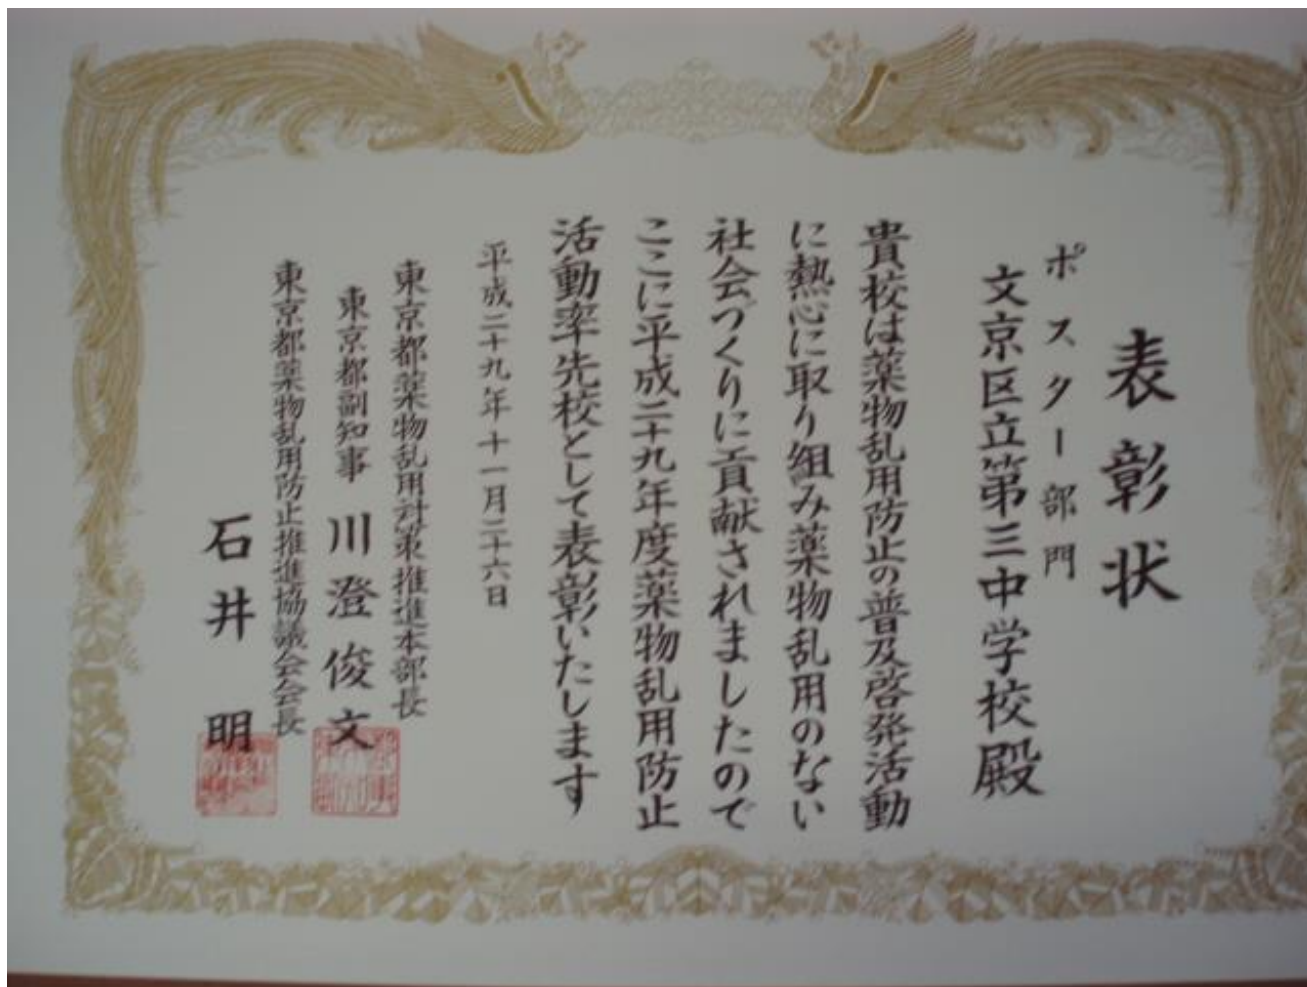 表彰状
ポスター部門
文京区立第三中学校殿
貴校は薬物乱用防止の普及啓発活動
に熱心に取り組み薬物乱用のない
社会づくりに貢献されましたので
ここに平成二十九年度薬物乱用防止
活動率先校として表彰いたします
平成二十九年十一月二十六日
東京都薬物乱用対策推進本部長
東京都副知事 川澄俊文
東京都薬物乱用防止推進協議会会長
石井 明